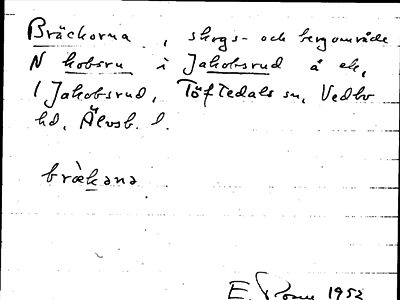 Bräckorna, skogs- och bergområde
N kobsru i Jakobsrud å ek,
1 Jakobsrud, Töftedals sn, Vedbo
hd, Älvsb. l.
bræ̀kana
E. 1952